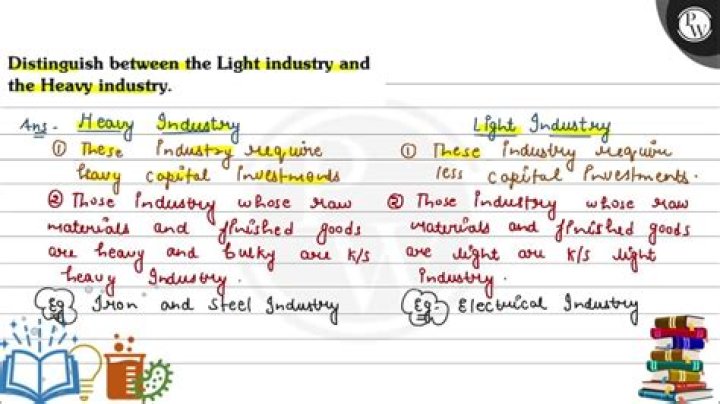 Distinguish between the Light industry and
the Heavy industry.
Ans - Heavy Industry
① These industry require
heavy capital investments
② Those industry whose raw
materials and finished goods
are heavy and bulky are k/s
heavy Industry.
Eg Iron and Steel Industry
Light Industry
① These industry require
less capital investments.
② Those industry whose raw
materials and finished goods
are light are k/s light
industry.
Eg- Electrical Industry
PW